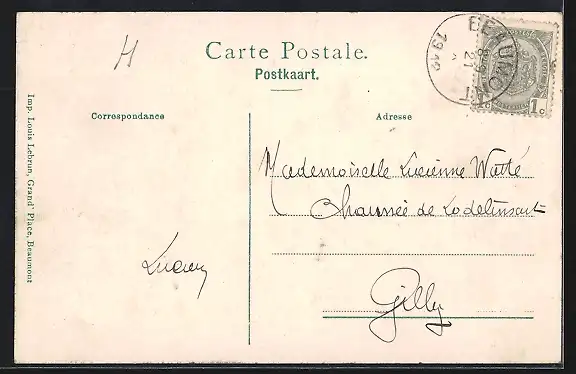 H
Carte Postale.
Postkaart.
Correspondance
Adresse
Imp. Louis Lebrun, Grand' Place, Beaumont
BEAUMONT
1912
1c
Mademoiselle Lucienne Watté
Chaussée de Lodelinsart
Lucien
Gilly